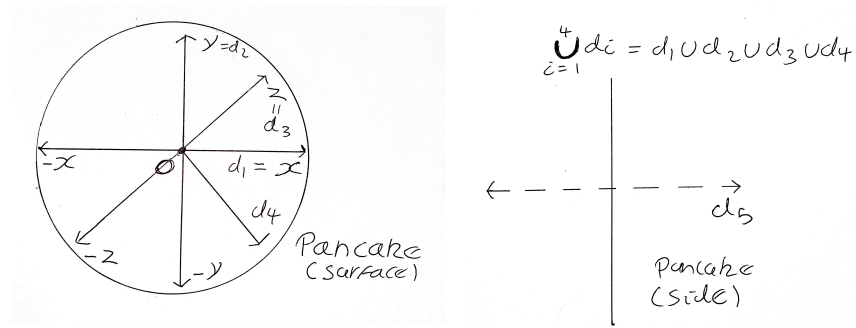 y=d₂
z
=
d₃
-x
d₁ = x
O
d₄
-z
-y
Pancake
(surface)
4
∪ di = d₁∪d₂∪d₃∪d₄
i=1
d₅
Pancake
(side)